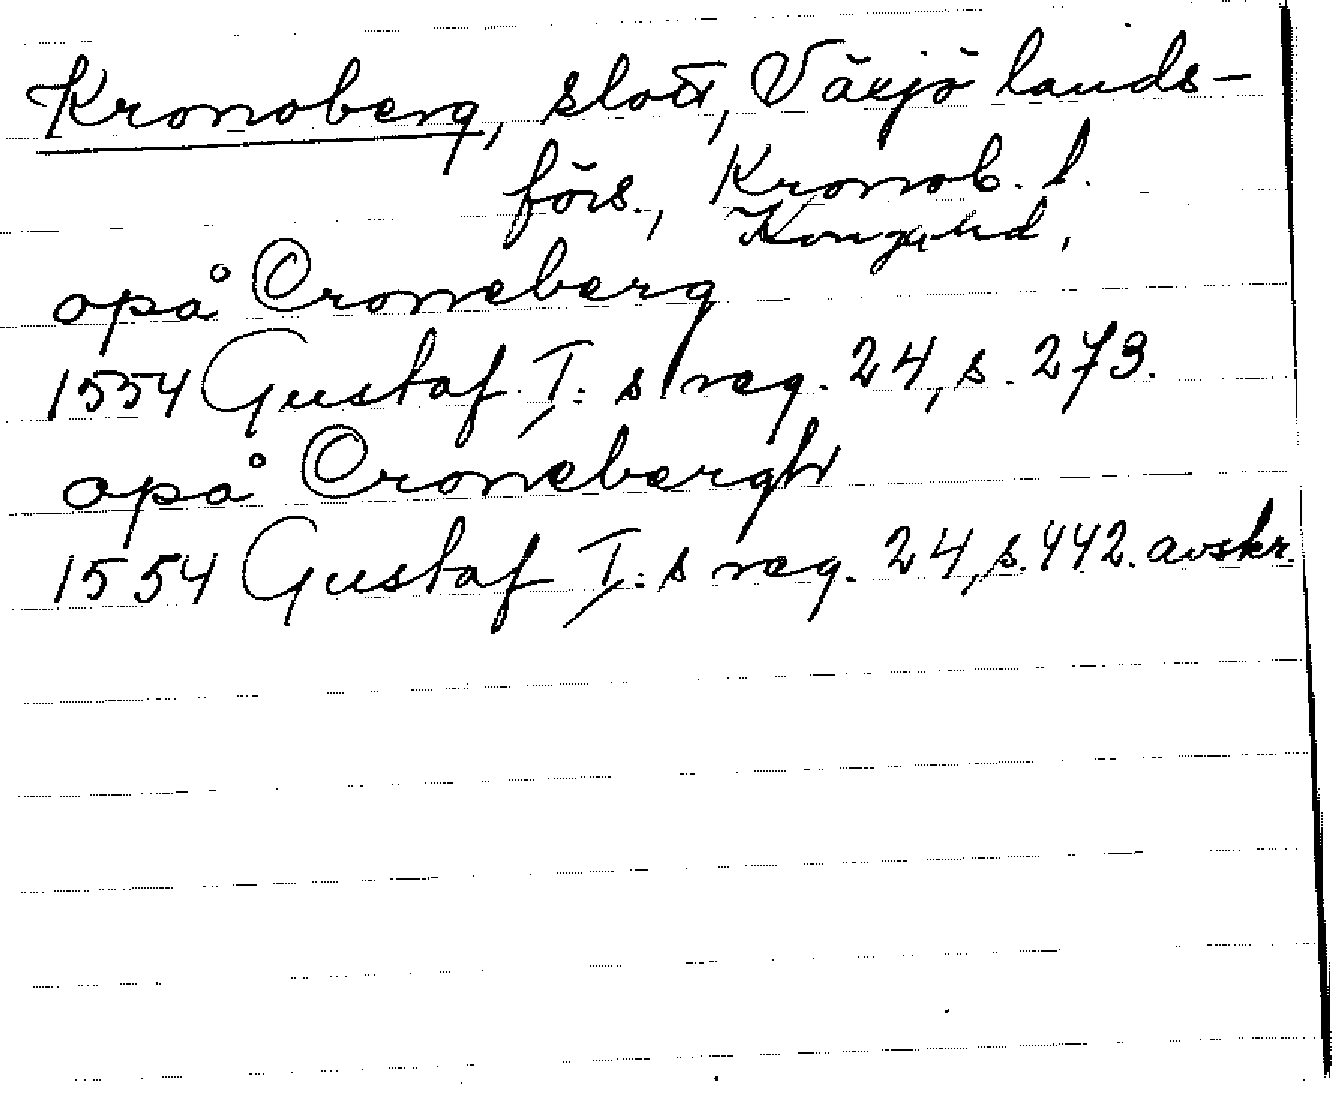 Kronoberg, slott, Växjö lands-
förs., Kronob. l.
Kungsund,
opå Croneberg
1554 Gustaf I:s reg. 24, s. 273.
opå Cronebergh
1554 Gustaf I:s reg. 24, s. 442. avskr.